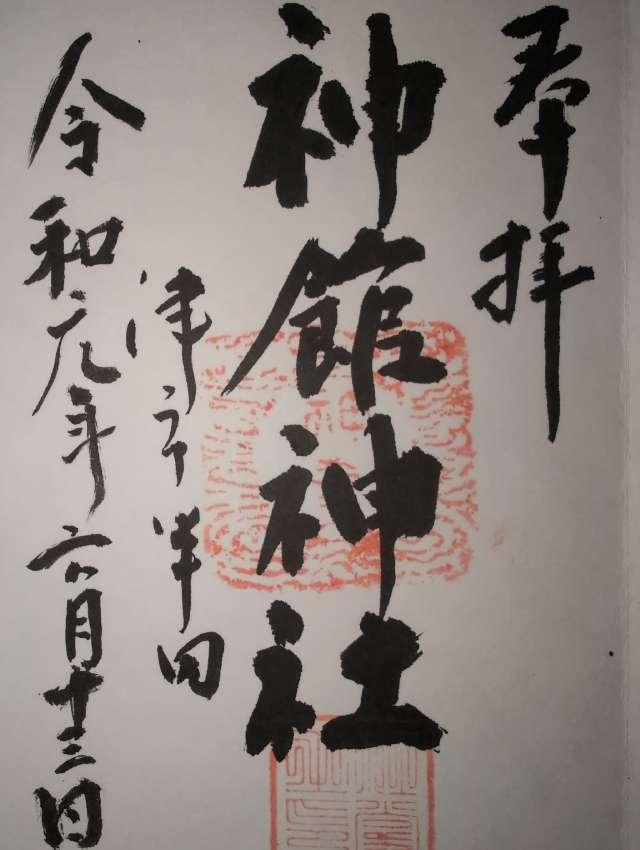 奉拝
神館神社
津市半田
令和元年六月十三日